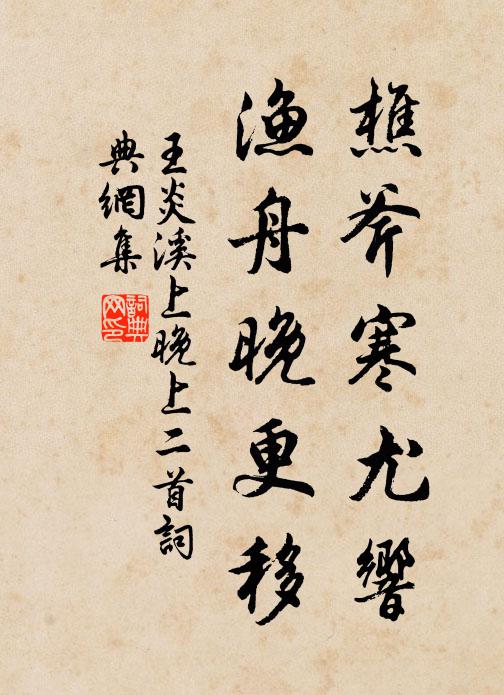 樵斧寒尤響
漁舟晚更移
王炎溪上晚上二首詞
典網集
詞典網印